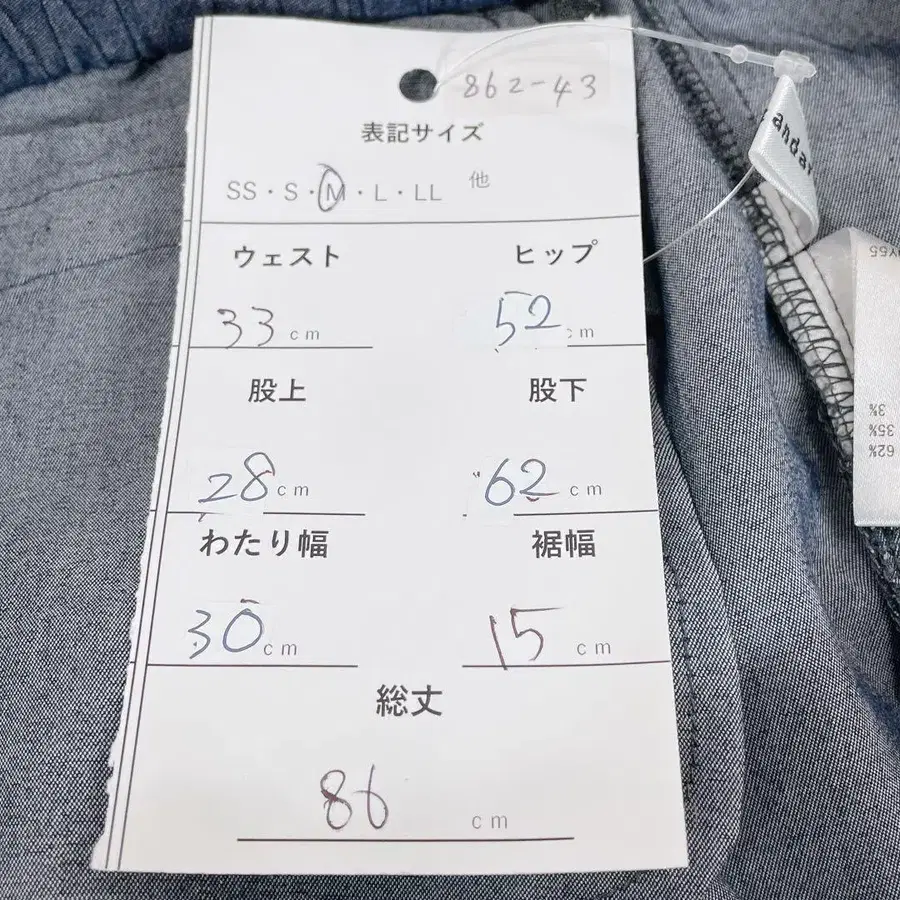 862-43
表記サイズ
SS・S・M・L・LL 他
ウェスト ヒップ
33 cm 52 cm
股上 股下
28 cm 62 cm
わたり幅 裾幅
30 cm 15 cm
総丈
86 cm
andar
3%
35%
62%